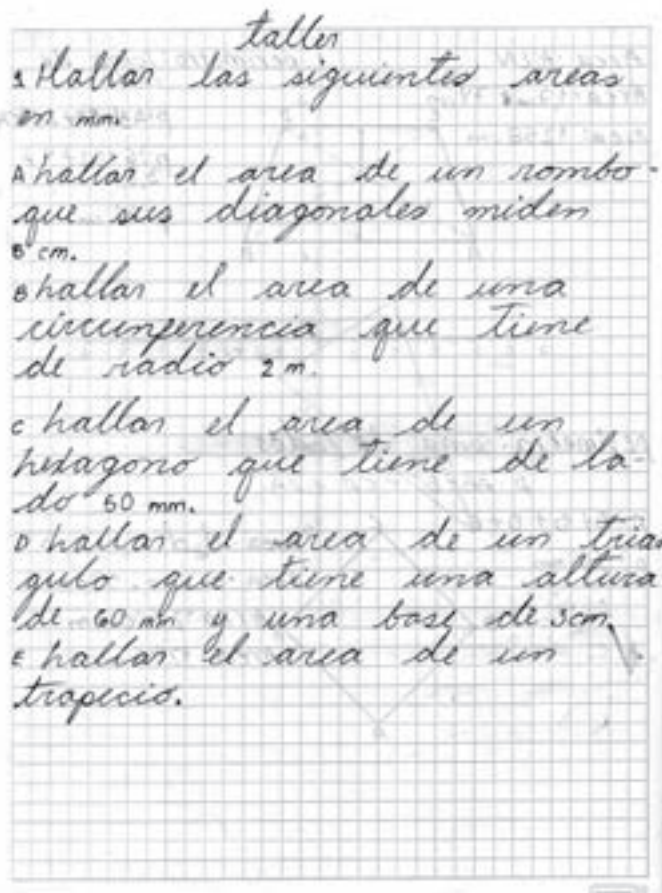 taller
1 Hallar las siguientes areas
en mm.
A hallar el area de un rombo
que sus diagonales miden
8 cm.
B hallar el area de una
circunferencia que tiene
de radio 2 m.
C hallar el area de un
hexagono que tiene de la-
do 50 mm.
D hallar el area de un trian
gulo que tiene una altura
de 60 mm y una base de 3 cm.
E hallar el area de un
trapecio.